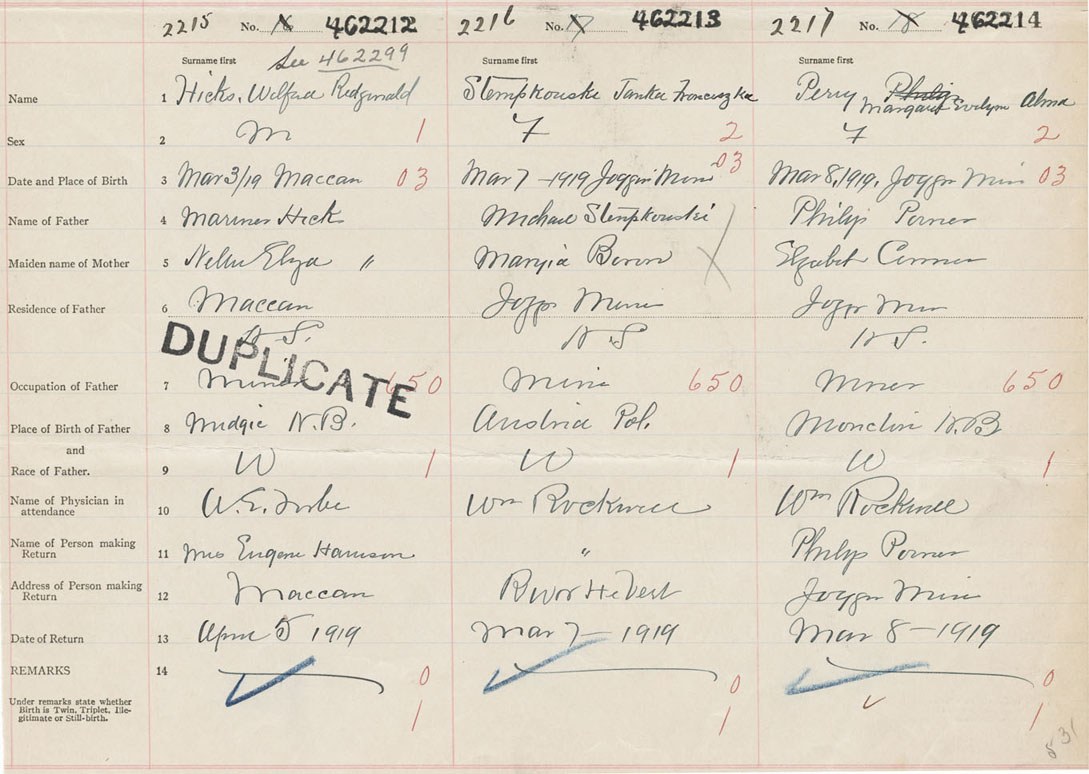 2215 No. 462212 2216 No. 462213 2217 No. 18 462214
See 462299
Surname first Surname first Surname first
Name 1 Hicks, Wilfred Redginald Stempkouska Janka Franciszka Perry Philip Margaret Evelyn Alma
Sex 2 M 1 F 2 F 2
Date and Place of Birth 3 Mar 3/19 Maccan 03 Mar 7 - 1919 Joggin Mine 03 Mar 8, 1919, Joggn Min 03
Name of Father 4 Mariner Hick Michael Stempkouski Philip Porner
Maiden name of Mother 5 Nellie Elyza " Maryia Boron Elzabet
Residence of Father 6 Maccan Joggs Mines Joggn Min
N.S. N S N S.
DUPLICATE
Occupation of Father 7 Miner 650 Mine 650 Miner 650
Place of Birth of Father 8 Midgic N.B. Austria Pol. Moncton N.B
and
Race of Father. 9 W 1 W 1 W 1
Name of Physician in
attendance 10 W.E. Wm Rockwell Wm Rockwell
Name of Person making
Return 11 Mrs Eugene Harrison " Philip Porner
Address of Person making
Return 12 Maccan River Hebert Joggn Mine
Date of Return 13 April 5 1919 Mar 7 - 1919 Mar 8 - 1919
REMARKS 14 0 0 0
Under remarks state whether
Birth is Twin, Triplet, Ille-
gitimate or Still-birth. 1 1 1